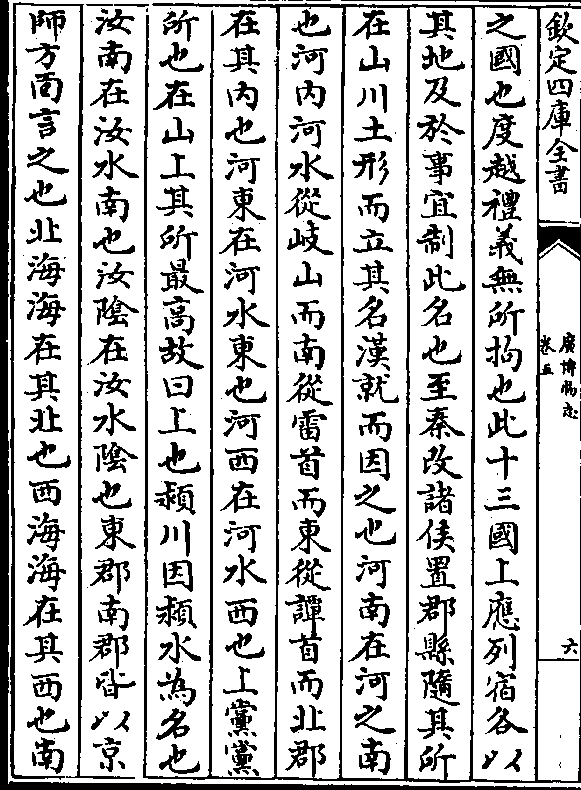 欽定四庫全書
廣博物志
卷五
六
之國也度越禮義無所拘也此十三國上應列宿各以
其地及於事宜制此名也至秦改諸侯置郡縣隨其所
在山川土形而立其名漢就而因之也河南在河之南
也河内河水從岐山而南從雷首而東從譚首而北郡
在其内也河東在河水東也河西在河水西也上黨黨
所也在山上其所最高故曰上也潁川因潁水為名也
汝南在汝水南也汝陰在汝水陰也東郡南郡皆以京
師方面言之也北海海在其北也西海海在其西也南